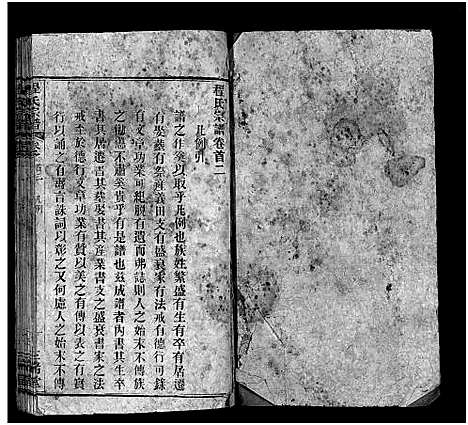 程氏宗譜卷首二
凡例引
譜之作奚以取乎凡例也族姓繁盛有生有卒有居遷
有娶葬有祭產義田支有盛衰家有法戒有德行可錄
有文章功業可紀脱有遺而弗誌則人之始末不傳族
之仙恩不肅奚貴乎有是譜也茲成譜者內書其生卒
書其居遷書其墓娶書其產業書支之盛衰書家之法
戒至於德行文章功業有贊以美之有傳以表之有實
行以誦之有壽言誄詞以彰之又何慮人之始末不傳
程氏宗譜
三
堂